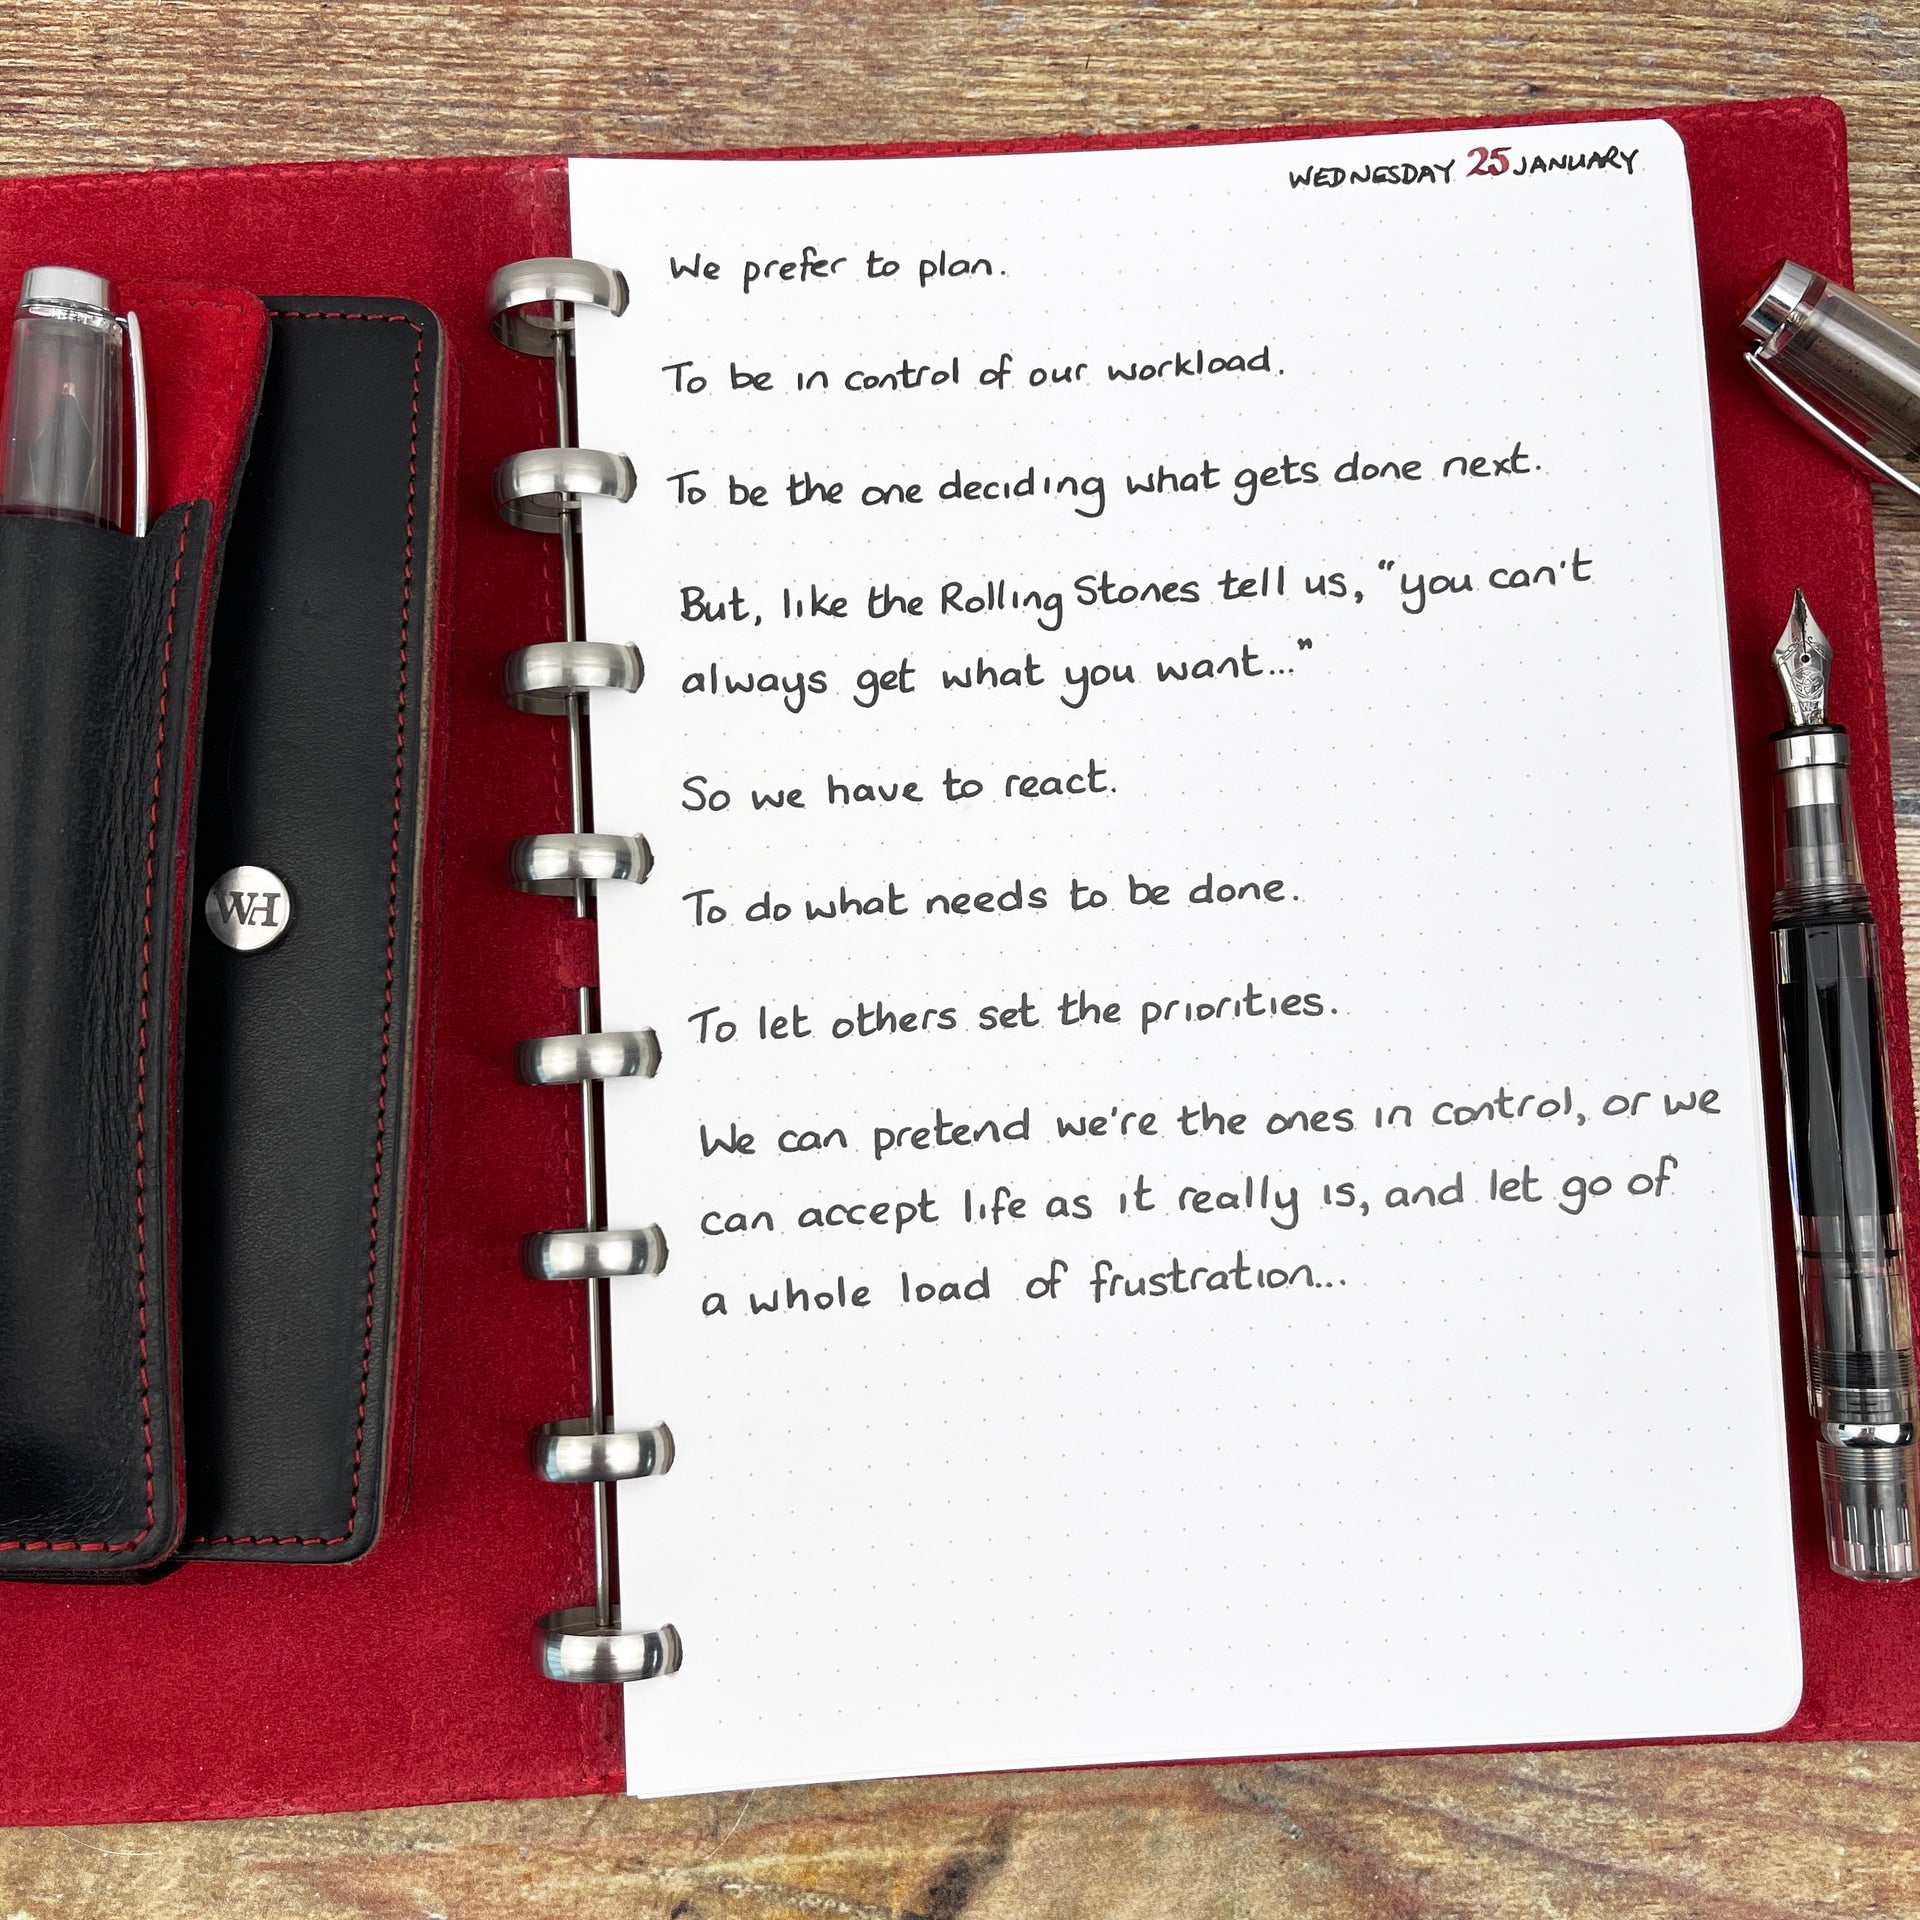 WEDNESDAY 25 JANUARY
We prefer to plan.
To be in control of our workload.
To be the one deciding what gets done next.
But, like the Rolling Stones tell us, "you can't
always get what you want..."
So we have to react.
To do what needs to be done.
To let others set the priorities.
We can pretend we're the ones in control, or we
can accept life as it really is, and let go of
a whole load of frustration...
WH